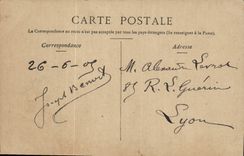 CARTE POSTALE
La Correspondance au recto n'est pas acceptée par tous les pays étrangers (Se renseigner à la Poste).
Correspondance
Adresse
26-6-05
M. Alexandre
Joseph Benoit
85 R. L. Guérin
Lyon